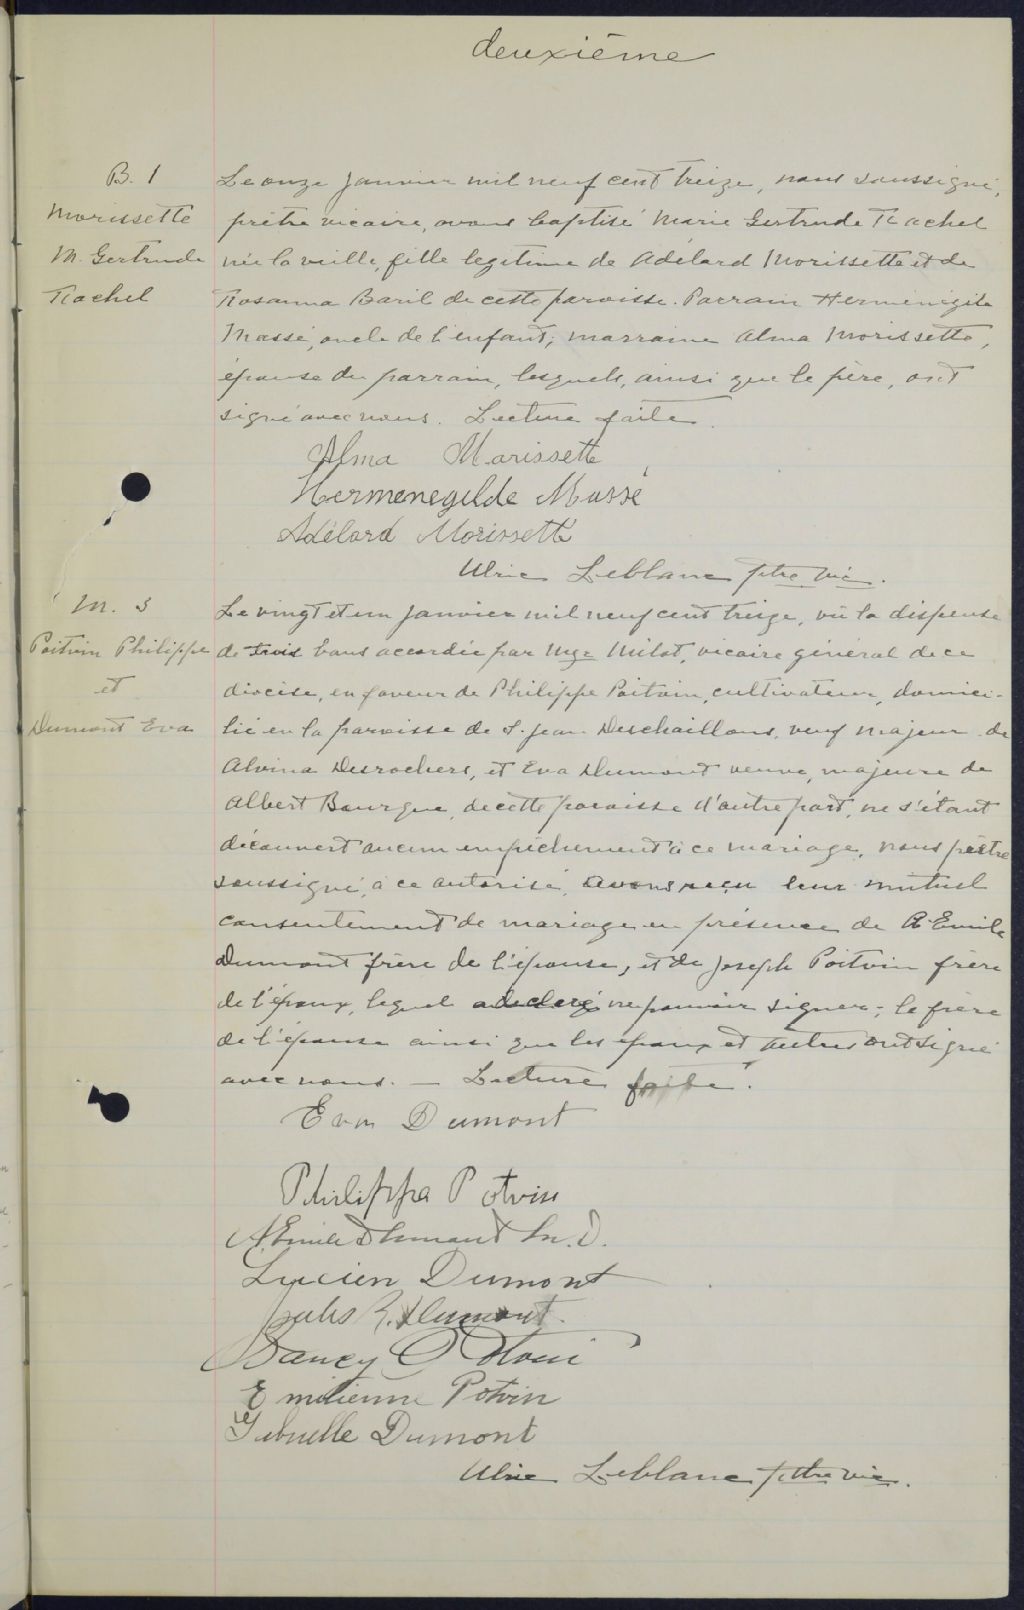 deuxième
B. 1
Morissette
M. Gertrude
Rachel
Le onze janvier mil neuf cent treize, nous soussigné,
prêtre vicaire, avons baptisé Marie Gertrude Rachel
née la veille, fille legitime de Adélard Morissette et de
Rosanna Baril de cette paroisse. Parrain Herménégile
Massé, oncle de l'enfant; marraine Alma Morissette,
épouse du parrain, lesquels, ainsi que le père, ont
signé avec nous. Lecture faite.
Alma Morissette
Hermenegilde Massé
Adélard Morissette
Ulric Leblanc ptre vic.
M. 3
Poitvin Philippe
et
Dumont Eva
Le vingt et un janvier mil neuf cent treize, vû la dispense
de trois bans accordée par Mgr Milot, vicaire général de ce
diocèse, en faveur de Philippe Poitvin, cultivateur, domici-
lié en la paroisse de S. Jean Deschaillons, veuf majeur de
Alvina Desrochers, et Eva Dumont veuve, majeure de
Albert Bourque, de cette paroisse d'autre part, ne s'étant
découvert aucun empêchement à ce mariage, nous prêtre
soussigné, à ce autorisé, avons reçu leur mutuel
consentement de mariage en présence de A. Emile
Dumont frère de l'épouse, et de Joseph Poitvin frère
de l'époux, lequel a declaré ne pouvoir signer; le frère
de l'épouse ainsi que les époux et autres ont signé
avec nous. — Lecture faite.
Eva Dumont
Philippe Potvin
A. Emile Dumont M.D.
Lucien Dumont
Jules R. Dumont
Potvin
Emilienne Potvin
Gabrielle Dumont
Ulric Leblanc ptre vic.